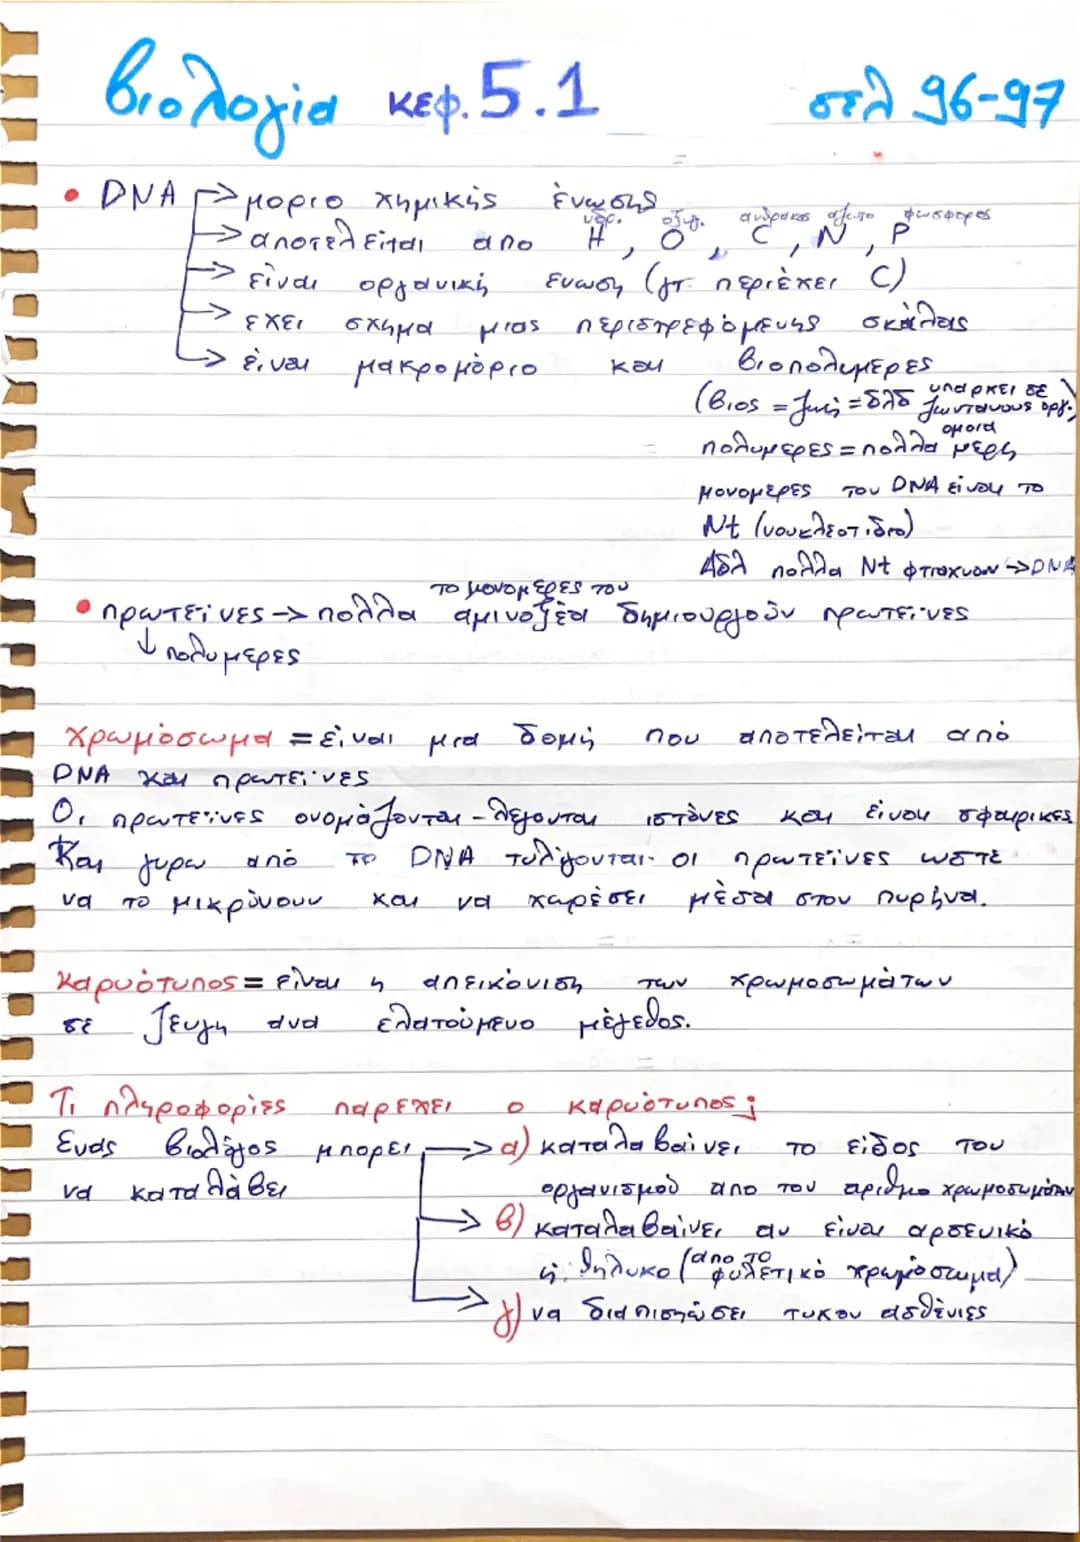 βιολογία κεφ. 5.1 σελ 96-97
• DNA → μοριο χημικής ένωσης
υδρ. οξυγ. ανθρακας αζωτο φωσφορος
→ αποτελείται απο H, O, C, N, P
→ είναι οργανική ενωση (γτ περιέχει C)
→ εχει σχημα μιας περιστρεφόμενης σκάλας
→ έιναι μακρομόριο και βιοπολυμερες
(βιος = ζωή = δλδ υπαρχει σε ζωντανους οργ.)
πολυμερες = πολλα ομοια μερη
μονομερες του DNA είναι το
Nt (νουκλεοτιδιο)
Δδλ πολλα Nt φτιαχνουν → DNA
το μονομερες του
• πρωτείνες → πολλα αμινοξέα δημιουργούν πρωτείνες
↓ πολυμερες
χρωμόσωμα = είναι μια δομή που αποτελείται από
DNA και πρωτείνες
Οι πρωτείνες ονομάζονται - λέγονται ιστόνες και είναι σφαιρικες
Και γυρω από το DNA τυλίγονται οι πρωτείνες ωστε
να το μικρύνουν και να χωρέσει μέσα στον πυρήνα.
καρυότυπος = είναι η απεικόνιση των χρωμοσωμάτων
σε ζευγη ανα ελατούμενο μέγεθος.
Τι πληροφορίες παρεχει ο καρυότυπος;
Ενας βιολόγος μπορει → α) καταλαβαίνει το είδος του
να καταλάβει οργανισμού απο τον αριθμο χρωμοσωμάτων
→ β) καταλαβαίνει αν είναι αρσενικό
ή θηλυκο (απο το φυλετικό χρωμόσωμα)
→ γ) να διαπιστώσει τυχον ασθένιες